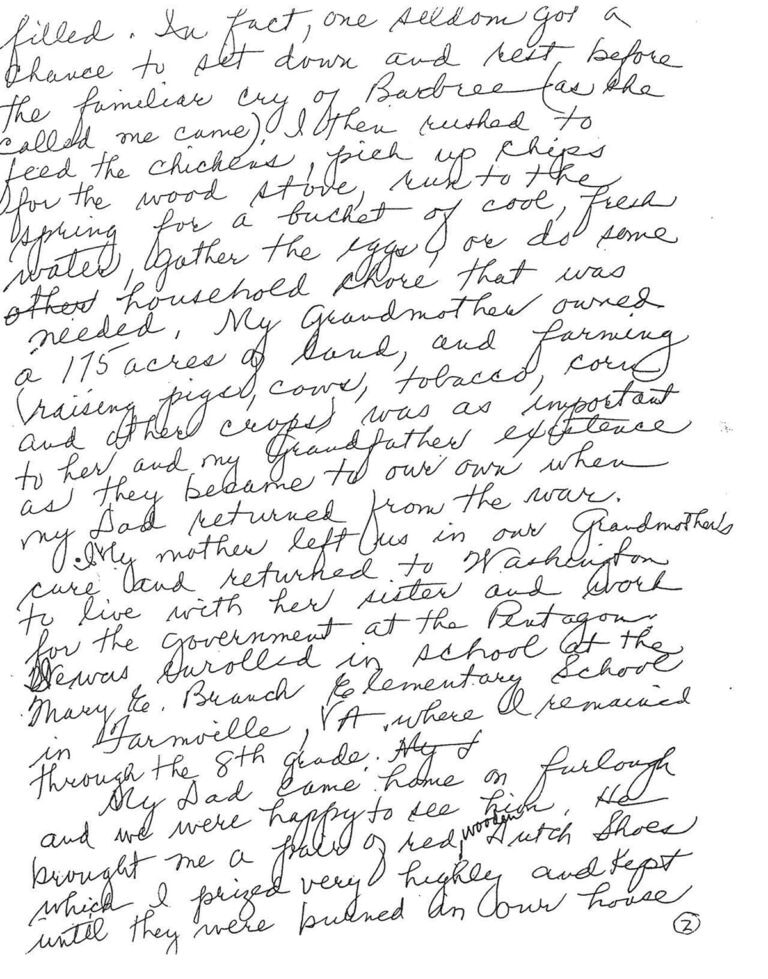 filled. In fact, one seldom got a
chance to set down and rest before
the familiar cry of Barbree (as she
called me came). I then rushed to
feed the chickens, pick up chips
for the wood stove, run to the
spring for a bucket of cool, fresh
water, gather the eggs, or do some
other household chore that was
needed. My Grandmother owned
a 175 acres of land, and farming
(raising pigs, cows, tobacco, corn
and other crops) was as important
to her and my Grandfather existence
as they became to our own when
my Dad returned from the war.
My mother left us in our Grandmother's
care and returned to Washington
to live with her sister and work
for the government at the Pentagon
We was enrolled in school at the
Mary E. Branch Elementary School
in Farmville, VA, where I remained
through the 8th grade. My
My Dad came home on furlough
and we were happy to see him. He
brought me a pair of red, wooden Dutch Shoes
which I prized very highly and kept
until they were burned in our house
2